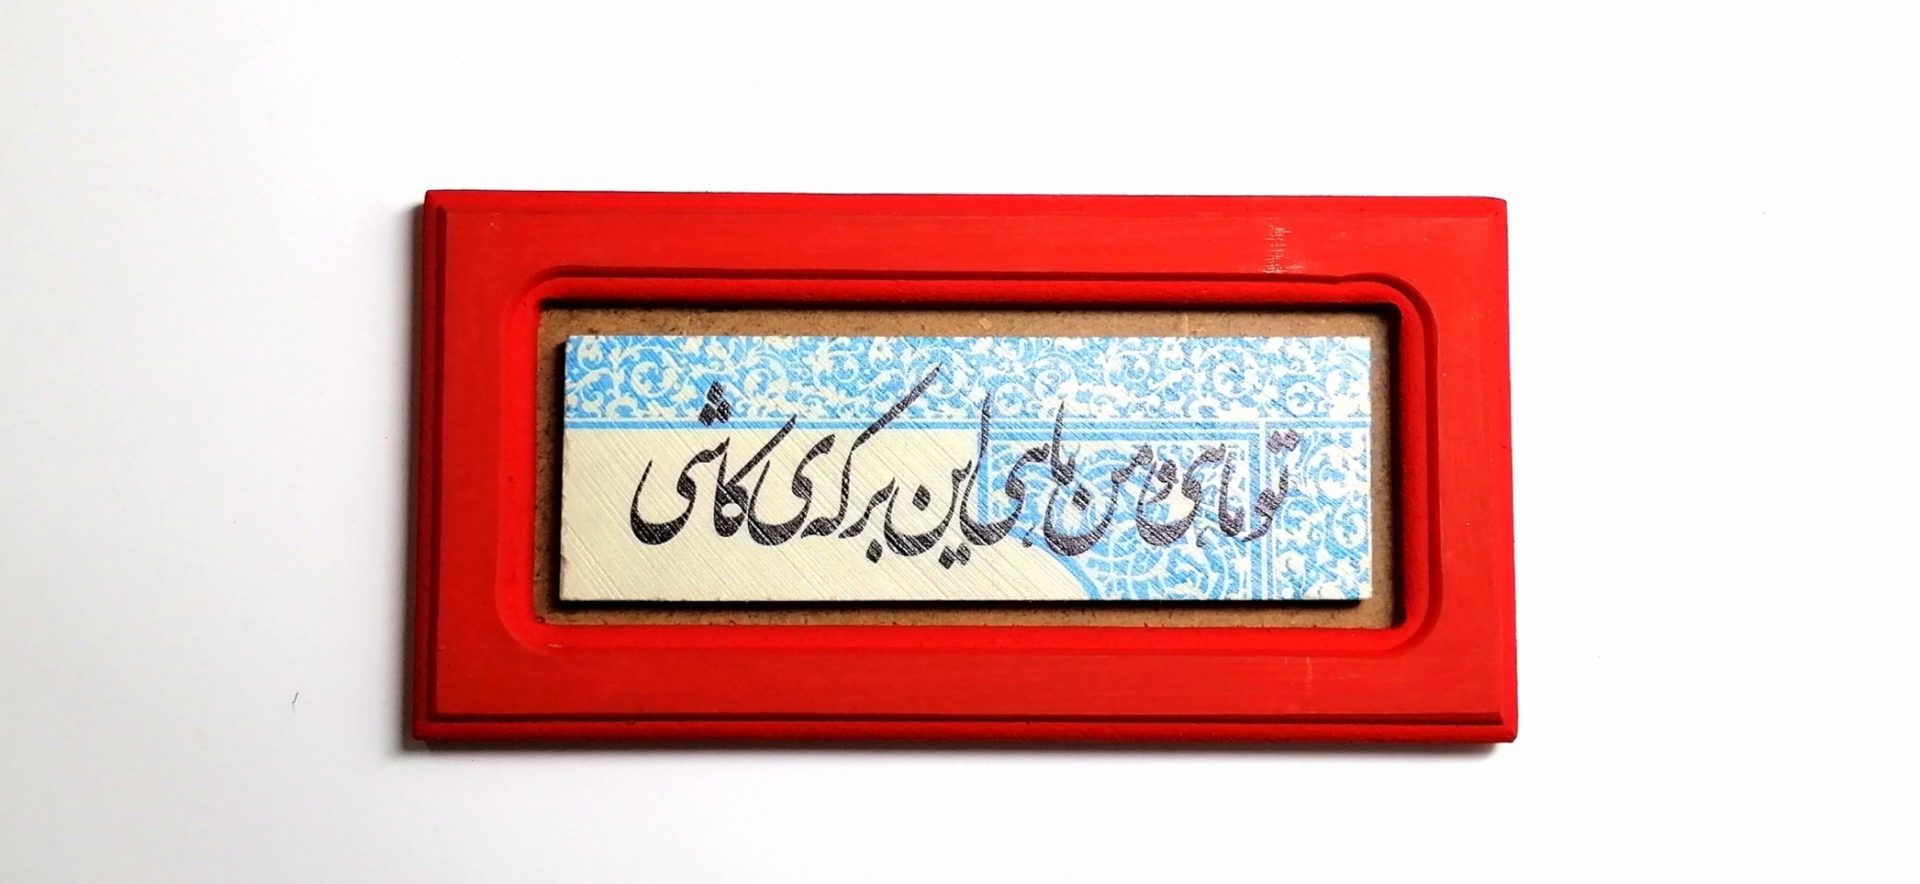 تو ماهی و من ماهی این برکه‌ی کاشی